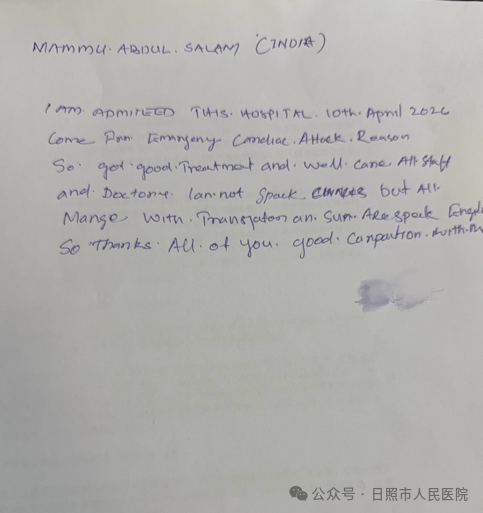 MAMMU. ABDUL. SALAM (INDIA)
I AM ADMITEED THIS. HOSPITAL. 10th. April 2026
Come Emergeny Cardiac. Attack. Reason
So. got good. Treatment and. Well. Care All Staff
and. Doctors. Ian. not Speck but All
Mange with. Translaton an. Sum. Are speck
So Thanks. All. of you. good.
公众号 · 日照市人民医院